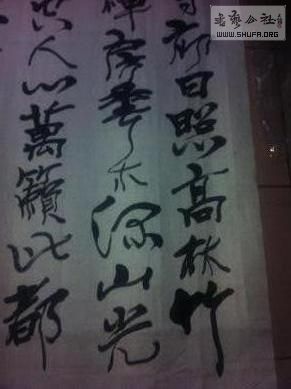 初日照高林竹
禪房花木深山光
空人心萬籟此都
書藝公社
WWW.SHUFA.ORG